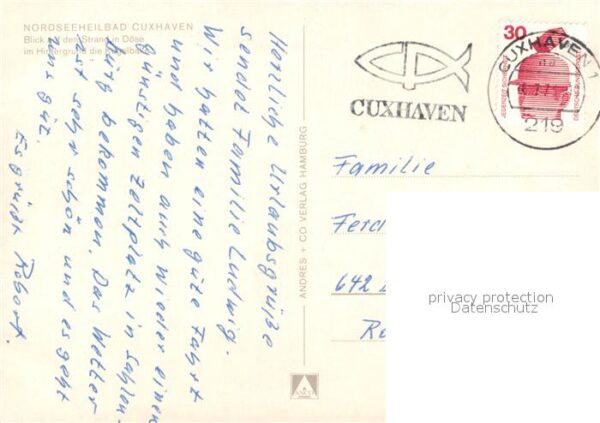 NORDSEEHEILBAD CUXHAVEN
Blick auf den Strand in Döse
im Hintergrund die Kugelbake
Herzliche Urlaubsgrüße
sendet Familie Ludwig.
Wir hatten eine gute Fahrt
und haben auch wieder einen
günstigen Zeltplatz in Sahlen-
burg bekommen. Das Wetter
ist sehr schön und es geht
uns gut.
Es grüßt Robert.
ANDRES + CO VERLAG HAMBURG
ANCO
CUXHAVEN
30
DEUTSCHE BUNDESPOST
CUXHAVEN 1
219
Familie
Ferd
642
Re
privacy protection
Datenschutz